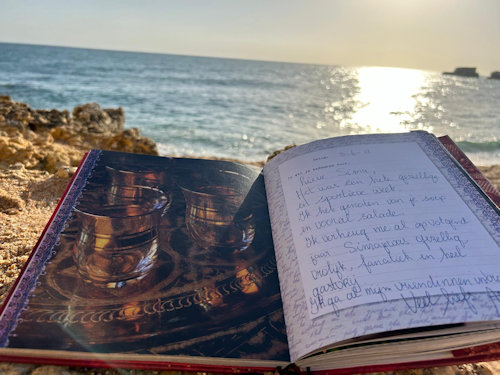 Lieve Simy,
Het was een hele gezellige
en spontane week.
Ik heb genoten van je soep
en vooral salade.
Ik verheug me al op volgend
jaar Simyavas gezellig
vrolijk, fanatiek en heel
gastvrij
Ik ga al mijn vriendinnen
Veel